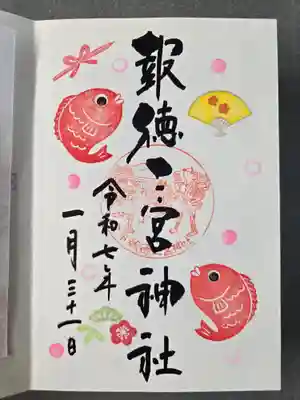 報徳二宮神社
令和七年
一月三十一日